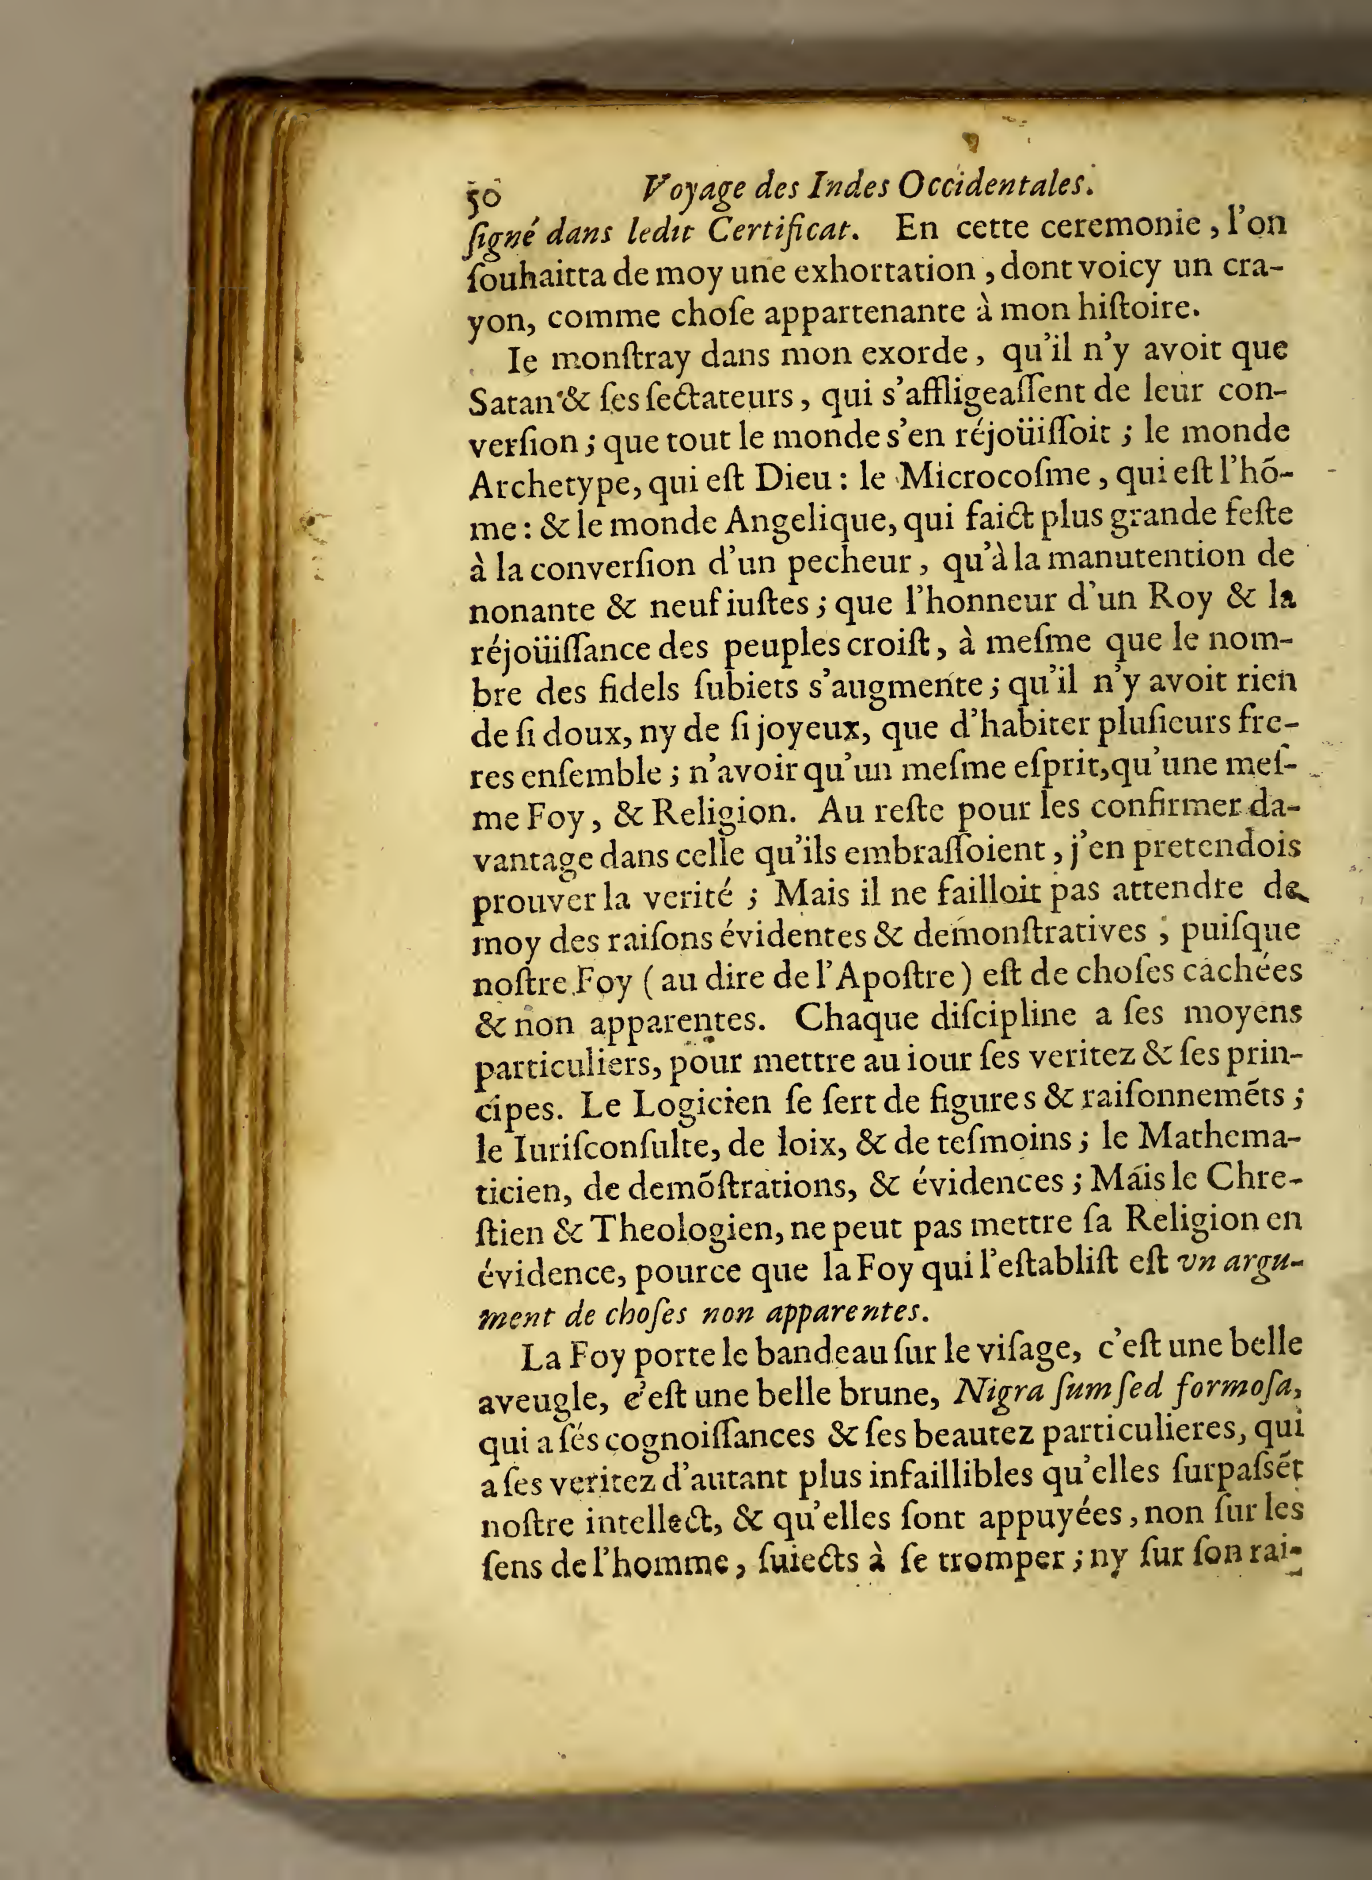 50 Voyage des Indes Occidentales.
ſigné dans ledit Certificat. En cette ceremonie, l'on
ſouhaitta de moy une exhortation, dont voicy un cra-
yon, comme choſe appartenante à mon hiſtoire.
Ie monſtray dans mon exorde, qu'il n'y avoit que
Satan & ſes ſectateurs, qui s'affligeaſſent de leur con-
verſion; que tout le monde s'en réjoüiſſoit; le monde
Archetype, qui eſt Dieu: le Microcoſme, qui eſt l'hõ-
me: & le monde Angelique, qui faict plus grande feſte
à la converſion d'un pecheur, qu'à la manutention de
nonante & neuf iuſtes; que l'honneur d'un Roy & la
réjoüiſſance des peuples croiſt, à meſme que le nom-
bre des fidels ſubiets s'augmente; qu'il n'y avoit rien
de ſi doux, ny de ſi joyeux, que d'habiter pluſieurs fre-
res enſemble; n'avoir qu'un meſme eſprit, qu'une meſ-
me Foy, & Religion. Au reſte pour les confirmer da-
vantage dans celle qu'ils embraſſoient, j'en pretendois
prouver la verité; Mais il ne failloit pas attendre de
moy des raiſons évidentes & demonſtratives; puiſque
noſtre Foy (au dire de l'Apoſtre) eſt de choſes cachées
& non apparentes. Chaque diſcipline a ſes moyens
particuliers, pour mettre au iour ſes veritez & ſes prin-
cipes. Le Logicien ſe ſert de figures & raiſonnemẽts;
le Iuriſconſulte, de loix, & de teſmoins; le Mathema-
ticien, de demõſtrations, & évidences; Mais le Chre-
ſtien & Theologien, ne peut pas mettre ſa Religion en
évidence, pource que la Foy qui l'eſtabliſt eſt vn argu-
ment de choſes non apparentes.
La Foy porte le bandeau ſur le viſage, c'eſt une belle
aveugle, c'eſt une belle brune, Nigra ſum ſed formoſa,
qui a ſés cognoiſſances & ſes beautez particulieres, qui
a ſes veritez d'autant plus infaillibles qu'elles ſurpaſsẽt
noſtre intellect, & qu'elles ſont appuyées, non ſur les
ſens de l'homme, ſuiects à ſe tromper; ny ſur ſon rai-